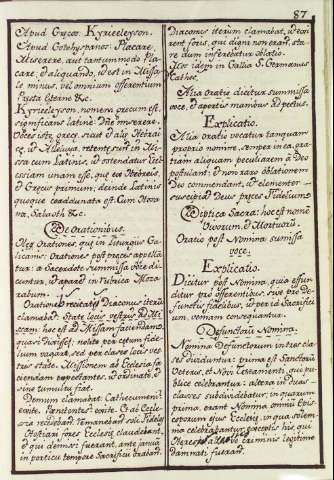 87
Apud Grecos. Kyrieeleyson.
Apud Gotehyspanos. Placare,
Miserere, aut tantummodo Pla-
care; & aliquando, id est in Missa-
le minus, vel omnium offerentium
Pxsta Eterno &c.
Kyrieeleyson, nomen precum est,
significans latine Dne miserere.
Voces iste grece, sicut & alie Hebrai-
ce, ut Alleluja, retente sunt in Mi-
ssa cum Latinis, ut ostendatur Ecc-
lesiam unam esse, que ex Hebreis,
& Grecis primum; deinde Latinis
quoque coadunata est. Cum Hosa-
na, Sabaoth &c.
De Orationibus.
He Orationes, que in Liturgiis Ga-
licanis Orationes post preces appella-
tur: a Sacerdote summissa voce di-
cuntur, ut apparet in Rubrica Moza-
rabum.
Orationibus recitatis Diaconus iterum
clamabat. State locis vestris ad Mi-
ssam: hoc est ad Missam faciendam;
quasi diceret; nolite per cetum fide-
lium vagare, sed per clases locis ves-
tris state. Missionem ab Ecclesia fa-
ciendam expectantes, ut ordinate, &
sine tumultu fiat.
Demum clamabat Cathecumeni
exite. Penitentes exite. Et ab Eccle-
sia recedebant. Remanebant soli Fideles
Ostiari fores Ecclesie claudebant,
& qui demissi fuerant, ante januas
in porticu tempore Sacrificii orabant
Diaconus iterum clamabat, ut exi-
rent foris, qui digni non erant, sta-
re dum inferebatur oblatio.
Hoc idem in Gallia S. Germanus
Cathec.
Alia Oratio dicitur summissa
voce, & apertis manibus ad pectus.
Explicatio.
Alia oratio vocatur tanquam
proprio nomine, semper in ea gra-
tiam aliquam peculiarem à Deo
postulant: & non raro oblationem
Deo commendant, ut clementer
suscipiat Deus preces Fidelium.
Diptica Sacra: hoc est nomẽ
Vivorum, & Mortuorũ
Oratio post Nomina summissa
voce.
Explicatio.
Dicitur post Nomina, quia effun-
ditur pro offerentibus, sive pro de-
functis fidelibus, ut per id Sacrifici-
um, veniam consequantur.
Defunctorũ Nomina.
Nomina Defunctorum in tres cla-
ses dividuntur: prima est Sanctorũ
Veteris, et Novi Testamenti, que pu-
blice celebrantur: altera in duas
clases subdividebatur; in quarum
prima, erant Nomina omnium Epis-
coporum ejus Ecclesie, in qua solem-
nia celebrabantur: exceptis his qui
Hereseos alio vero criminis legitime
damnati fuerant.